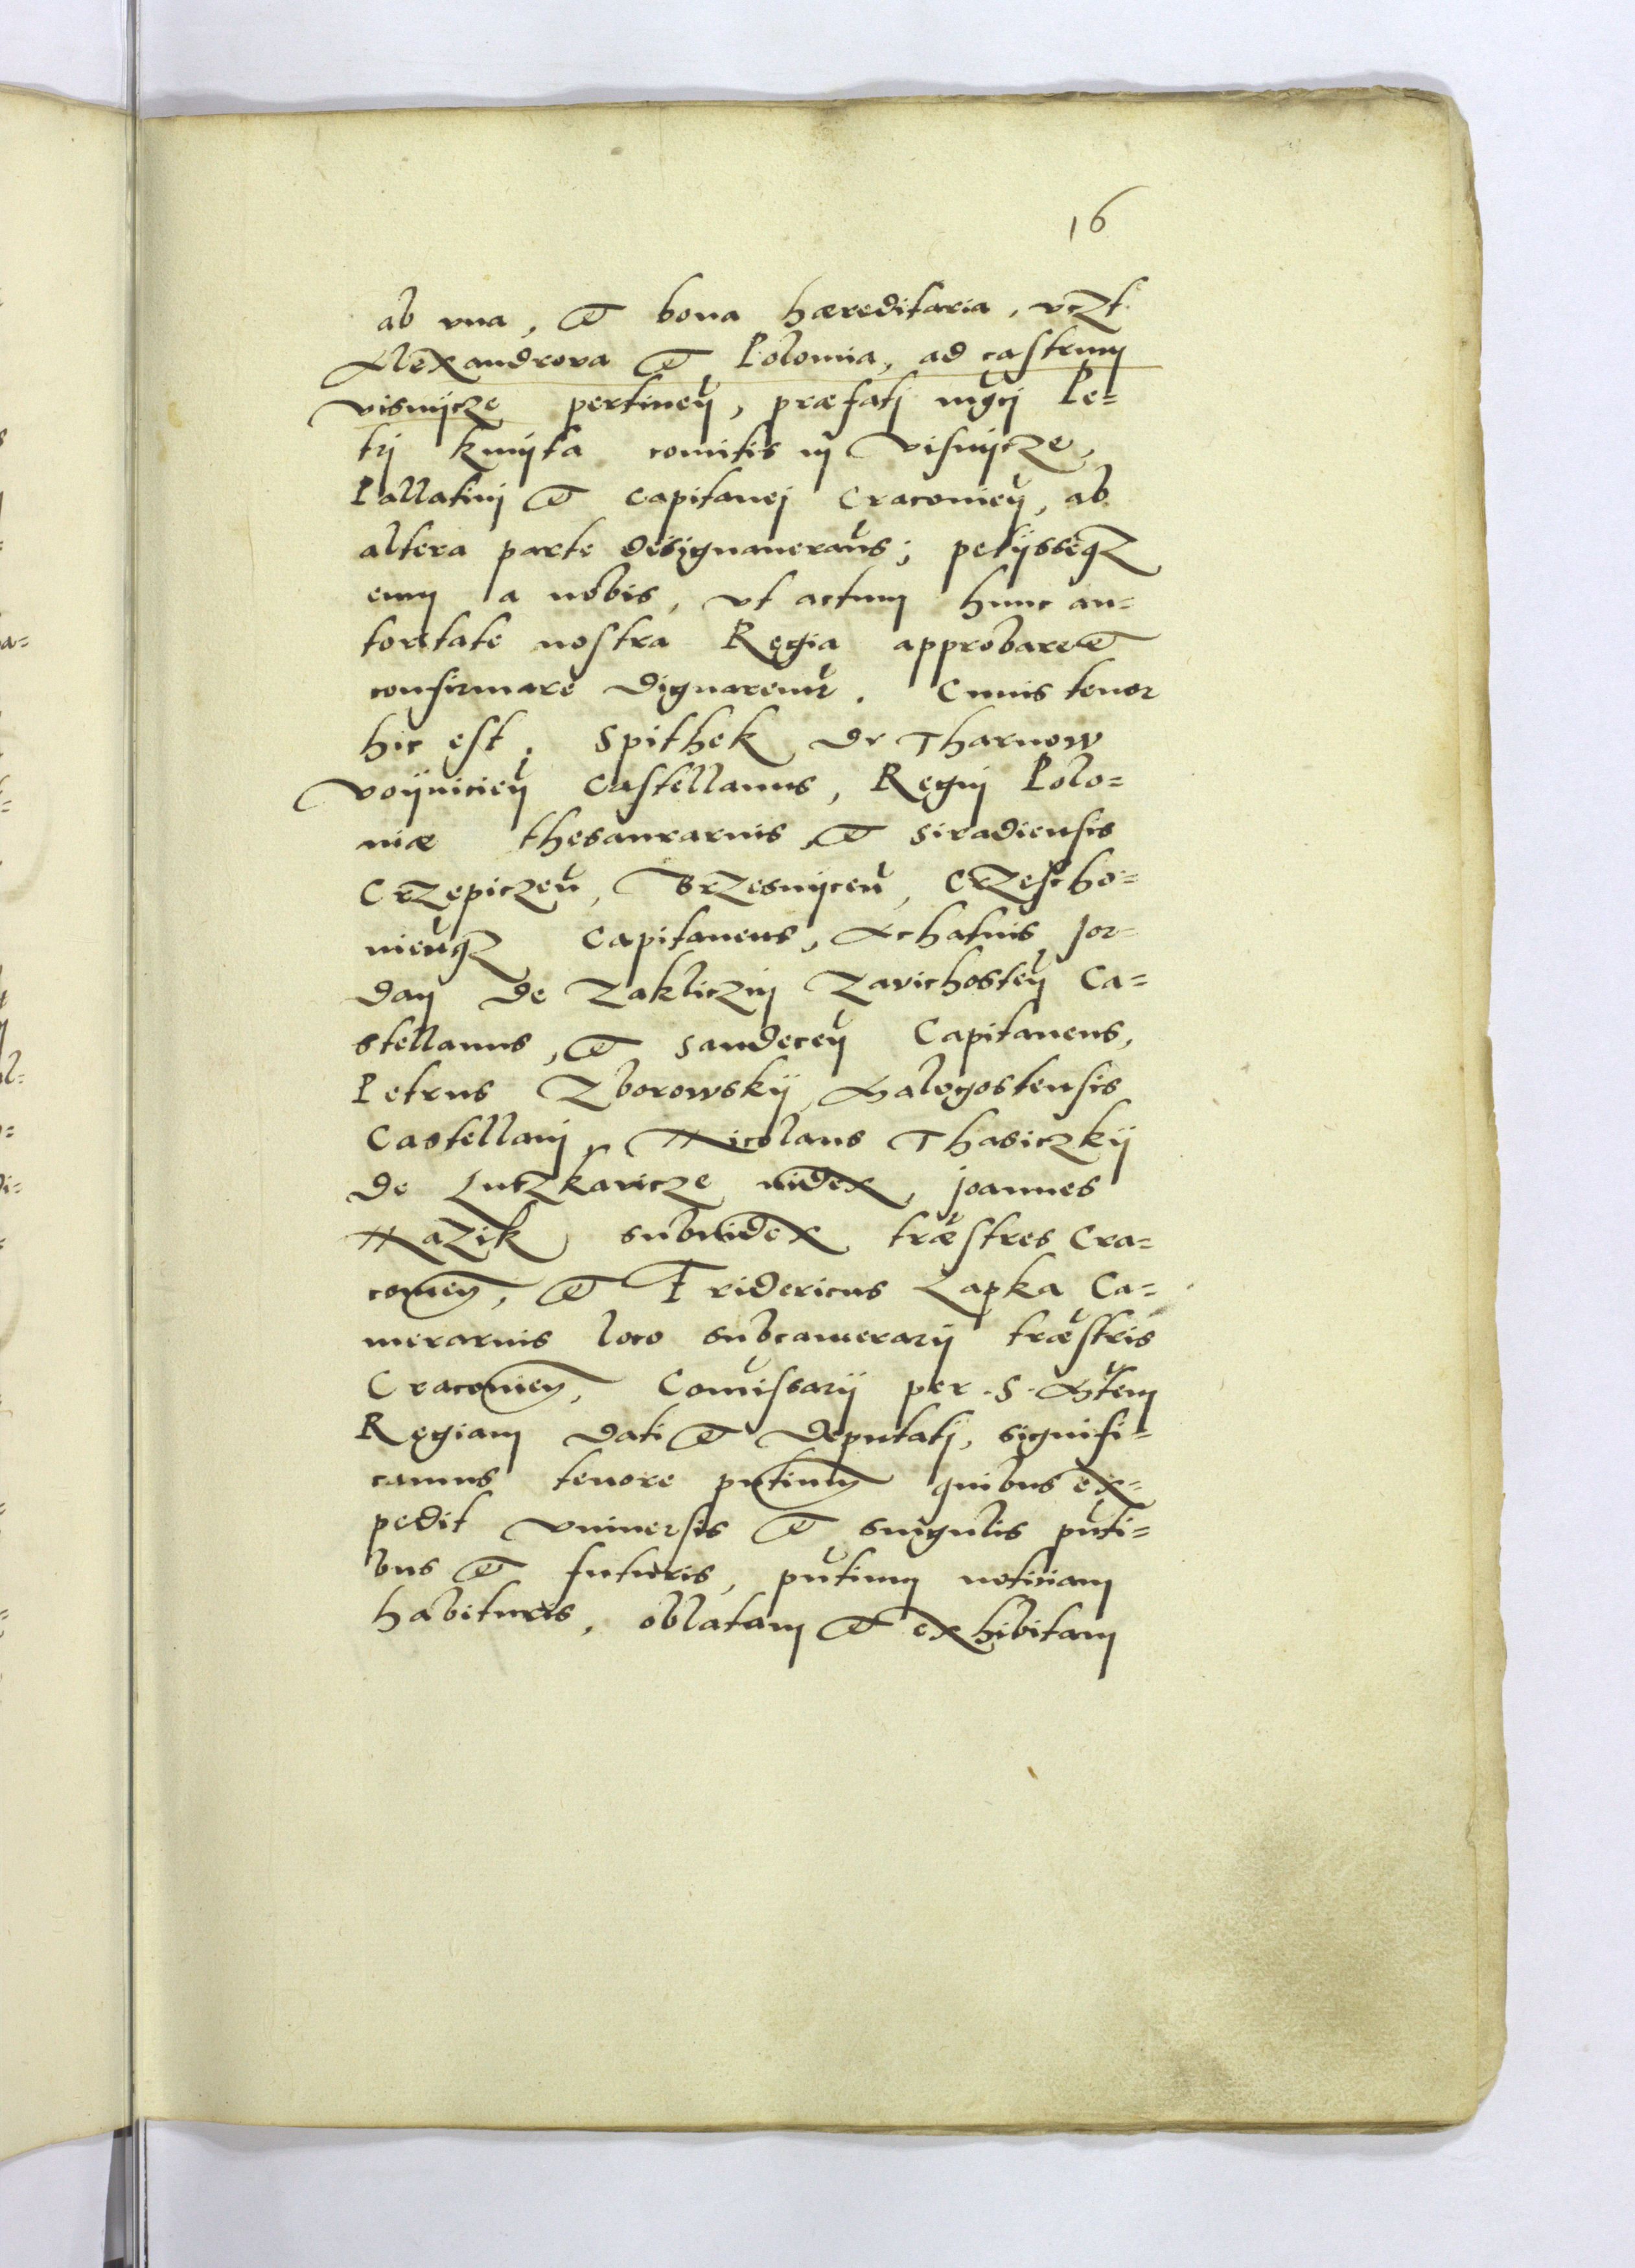 16
ab vna, et bona hæreditaria, vczt
Alexandrova et Polomia, ad castrum
visnijcze pertinen̄, præfatj mgcj Pe=
trj Kmijta comitis in Visnijcze,
Pallatinj et Capitanej Cracovien̄, ab
altera parte designauerant; petijsseqꝫ
eum a nobis, vt actum hunc au=
toritate nostra Regia approbare et
confirmare dignaremur. Cuius tenor
hic est, Spithek de Tharnow
Voijnicien̄ Castellanus, Regnj Polo=
niæ thesaurarius et Siradiensis
Crzepiczen̄, Brzesnijcen̄, Crzescho=
wien̄qꝫ Capitaneus, Achatius Jor=
dan de Zakliczin Zavichosten̄ Ca=
stellanus, et Sandecen̄ Capitaneus,
Petrus Zborowskij Malogostensis
Castellanj, Nicolaus Thasiczkij
de Lutzkavicze iudex, Joannes
Razik subiudex træstres Cra=
covien̄, et Fridericus Lapka Ca=
merarius loco subcamerarij træstris
Cracovien̄, Comissarij per S. Mtem
Regiam dati et deputatj, signifi=
camus tenore pntium quibus ex=
pedit vniuersis et singulis pnti=
bus et futuris, pntium notitiam
habituris, oblatam et exhibitam